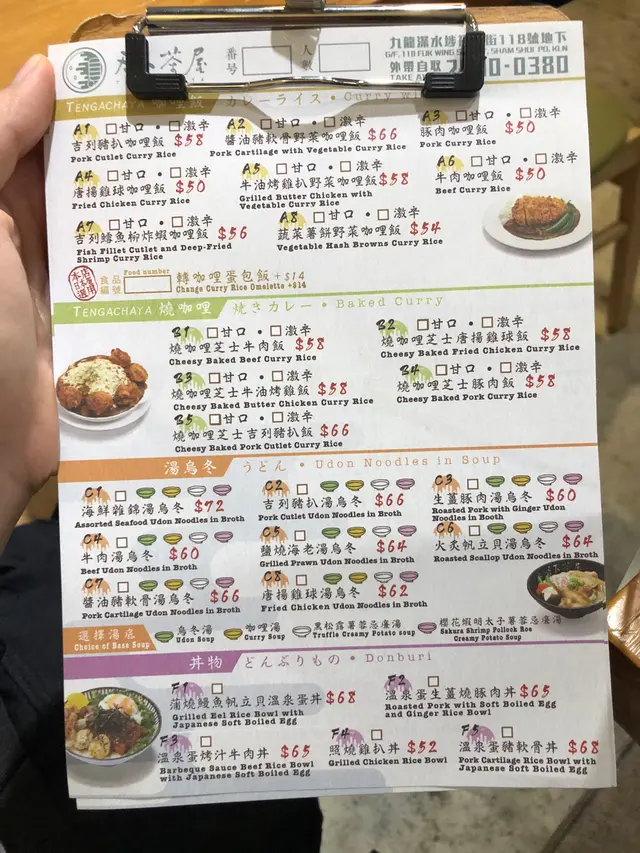 茶屋
番號
人數
九龍深水埗
街118號地下
SHAM SHUI PO, KLN
外帶自取
-0380
TENGACHAYA 咖哩飯 カレーライス • Curry
A1 甘口 • 激辛
吉列豬扒咖哩飯 $58
Pork Cutlet Curry Rice
A2 甘口 • 激辛
醬油豬軟骨野菜咖哩飯 $66
Pork Cartilage with Vegetable Curry Rice
A3 甘口 • 激辛
豚肉咖哩飯 $50
Pork Curry Rice
A4 甘口 • 激辛
唐揚雞球咖哩飯 $50
Fried Chicken Curry Rice
A5 甘口 • 激辛
牛油烤雞扒野菜咖哩飯 $58
Grilled Butter Chicken with
Vegetable Curry Rice
A6 甘口 • 激辛
牛肉咖哩飯 $50
Beef Curry Rice
A7 甘口 • 激辛
吉列鱈魚柳炸蝦咖哩飯 $56
Fish Fillet Cutlet and Deep-Fried
Shrimp Curry Rice
A8 甘口 • 激辛
蔬菜薯餅野菜咖哩飯 $54
Vegetable Hash Browns Curry Rice
食品編號
Food number
轉咖哩蛋包飯 +$14
Change Curry Rice Omelette +$14
TENGACHAYA 燒咖哩 焼きカレー • Baked Curry
B1 甘口 • 激辛
燒咖哩芝士牛肉飯 $58
Cheesy Baked Beef Curry Rice
B2 甘口 • 激辛
燒咖哩芝士唐揚雞球飯 $58
Cheesy Baked Fried Chicken Curry Rice
B3 甘口 • 激辛
燒咖哩芝士牛油烤雞飯 $58
Cheesy Baked Butter Chicken Curry Rice
B4 甘口 • 激辛
燒咖哩芝士豚肉飯 $58
Cheesy Baked Pork Curry Rice
B5 甘口 • 激辛
燒咖哩芝士吉列豬扒飯 $66
Cheesy Baked Pork Cutlet Curry Rice
湯烏冬 うどん • Udon Noodles in Soup
C1
海鮮雜錦湯烏冬 $72
Assorted Seafood Udon Noodles in Broth
C2
吉列豬扒湯烏冬 $66
Pork Cutlet Udon Noodles in Broth
C3
生薑豚肉湯烏冬 $60
Roasted Pork with Ginger Udon
Noodles in Broth
C4
牛肉湯烏冬 $60
Beef Udon Noodles in Broth
C5
鹽燒海老湯烏冬 $64
Grilled Prawn Udon Noodles in Broth
C6
火炙帆立貝湯烏冬 $64
Roasted Scallop Udon Noodles in Broth
C7
醬油豬軟骨湯烏冬 $66
Pork Cartilage Udon Noodles in Broth
C8
唐揚雞球湯烏冬 $62
Fried Chicken Udon Noodles in Broth
選擇湯底
Choice of Base Soup
烏冬湯
Udon Soup
咖哩湯
Curry Soup
黑松露薯蓉忌廉湯
Truffle Creamy Potato soup
櫻花蝦明太子薯蓉忌廉湯
Sakura Shrimp Pollock Roe
Creamy Potato Soup
丼物 どんぶりもの • Donburi
F1
蒲燒鰻魚帆立貝溫泉蛋丼 $68
Grilled Eel Rice Bowl with
Japanese Soft Boiled Egg
F2
溫泉蛋生薑燒豚肉丼 $65
Roasted Pork with Soft Boiled Egg
and Ginger Rice Bowl
F3
溫泉蛋烤汁牛肉丼 $65
Barbeque Sauce Beef Rice Bowl
with Japanese Soft Boiled Egg
F4
照燒雞扒丼 $52
Grilled Chicken Rice Bowl
F5
溫泉蛋豬軟骨丼 $68
Pork Cartilage Rice Bowl with
Japanese Soft Boiled Egg